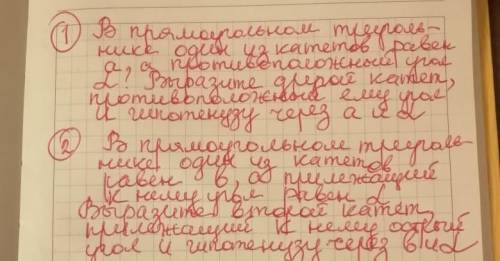 ① В прямоугольном треуголь-
нике один из катетов равен
a, а противоположный угол
α? Выразите другой катет,
противоположный ему угол
и гипотенузу через a и α
② В прямоугольном треуголь-
нике один из катетов
равен в, а прилежащий
к нему угол равен α
Выразите второй катет,
прилежащий к нему острый
угол и гипотенузу через в и α